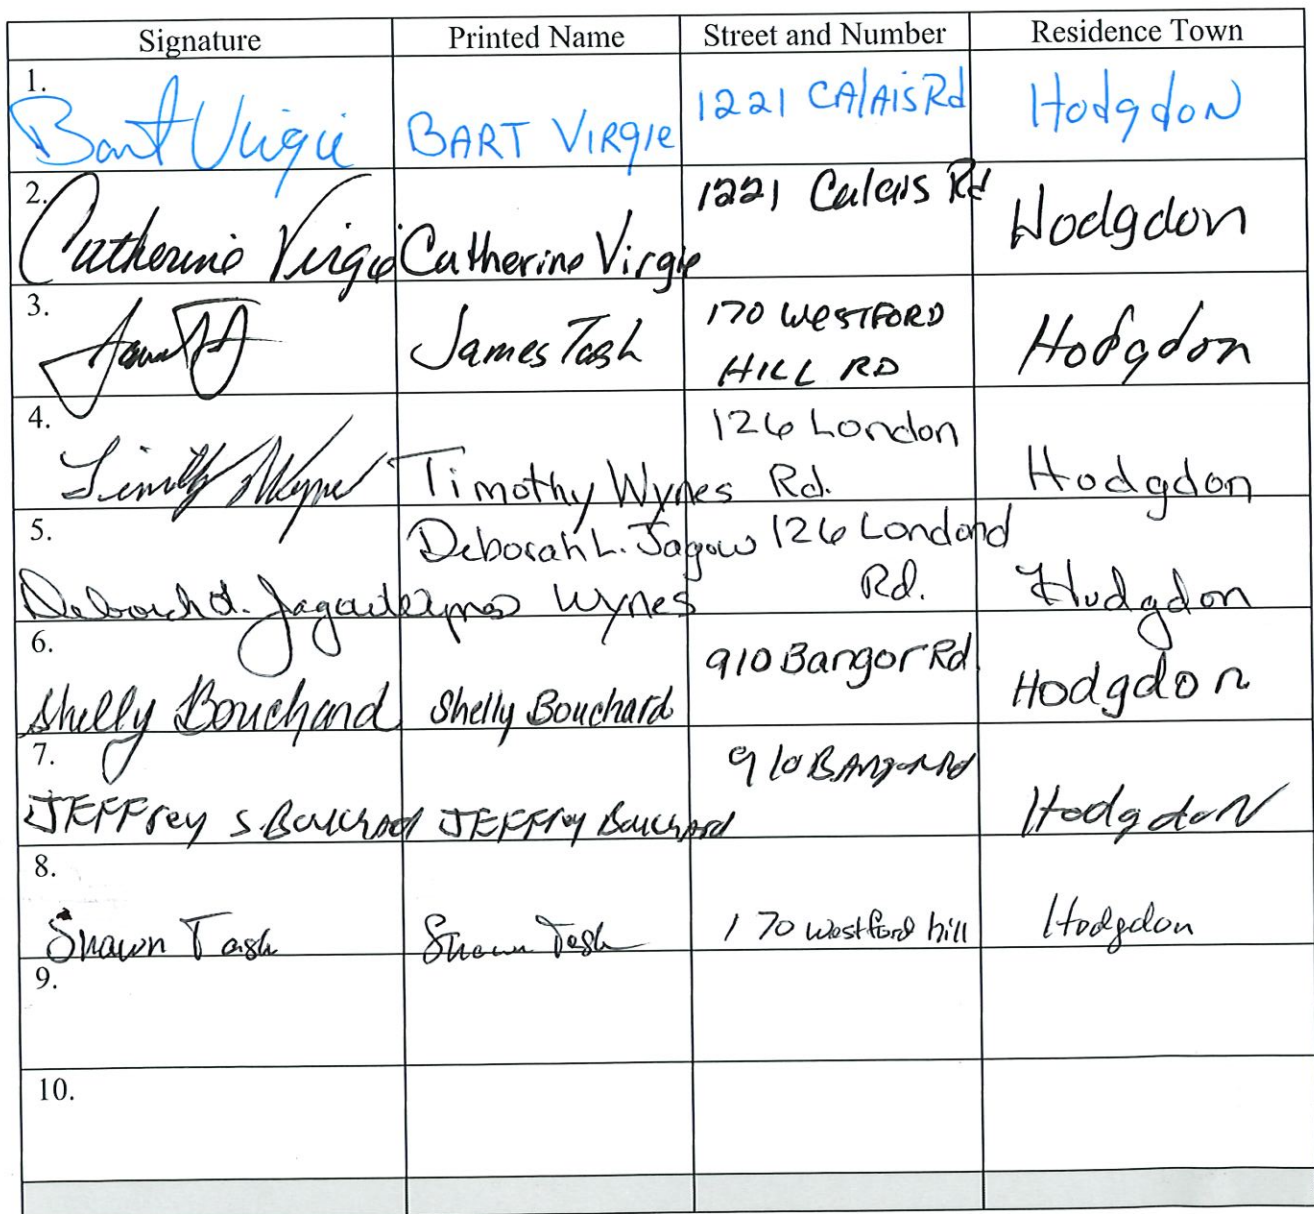 Signature Printed Name Street and Number Residence Town
1.
Bart Virgie BART VIRGIE 1221 CAlAis Rd Hodgdon
2.
Catherine Virgie Catherine Virgie 1221 Calais Rd Hodgdon
3.
James Tash 170 WESTFORD Hodgdon
HILL RD
4.
Timothy Wynes Timothy Wynes 126 London Hodgdon
Rd.
5.
Deborah L. Jagow Wynes Deborah L. Jagow 126 Londond Hodgdon
Wynes Rd.
6.
Shelly Bouchard Shelly Bouchard 910 Bangor Rd Hodgdon
7.
JEFFrey S. Bouchard JEFFrey Bouchard 910 BAngor Rd HodgdoN
8.
Shawn Tash Shawn Tash 170 westford hill Hodgdon
9.
10.